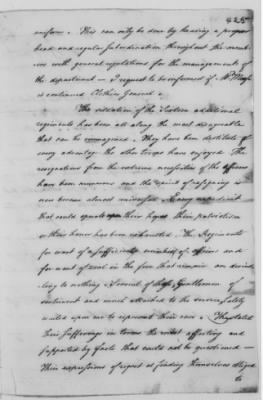 425
uniform. This can only be done by having a proper
head and regular subordination throughout the members
with general regulations for the management of
the department — I request to be informed if Mr
is continued Clothier General.
The situation of the sixteen additional
regiments has been all along the most disagreeable
that can be immagined. They have been destitute of
every advantage the other troops have enjoyed. The
resignations from the extreme necessities of the officers
have been numerous and the spirit of resigning is
now become almost universal. Every expedient
that could operate upon their hopes their patriotism
or their honor has been exhausted. The Regiments
for want of a sufficient number of officers and
for want of zeal in the few that remain are dwind
ling to nothing. Several of these Gentlemen of
sentiment and much attached to the service lately
waited upon me to represent their case. They stated
their sufferings in terms the most affecting and
supported by facts that could not be questioned —
Their expressions of regret at finding themselves obliged
to